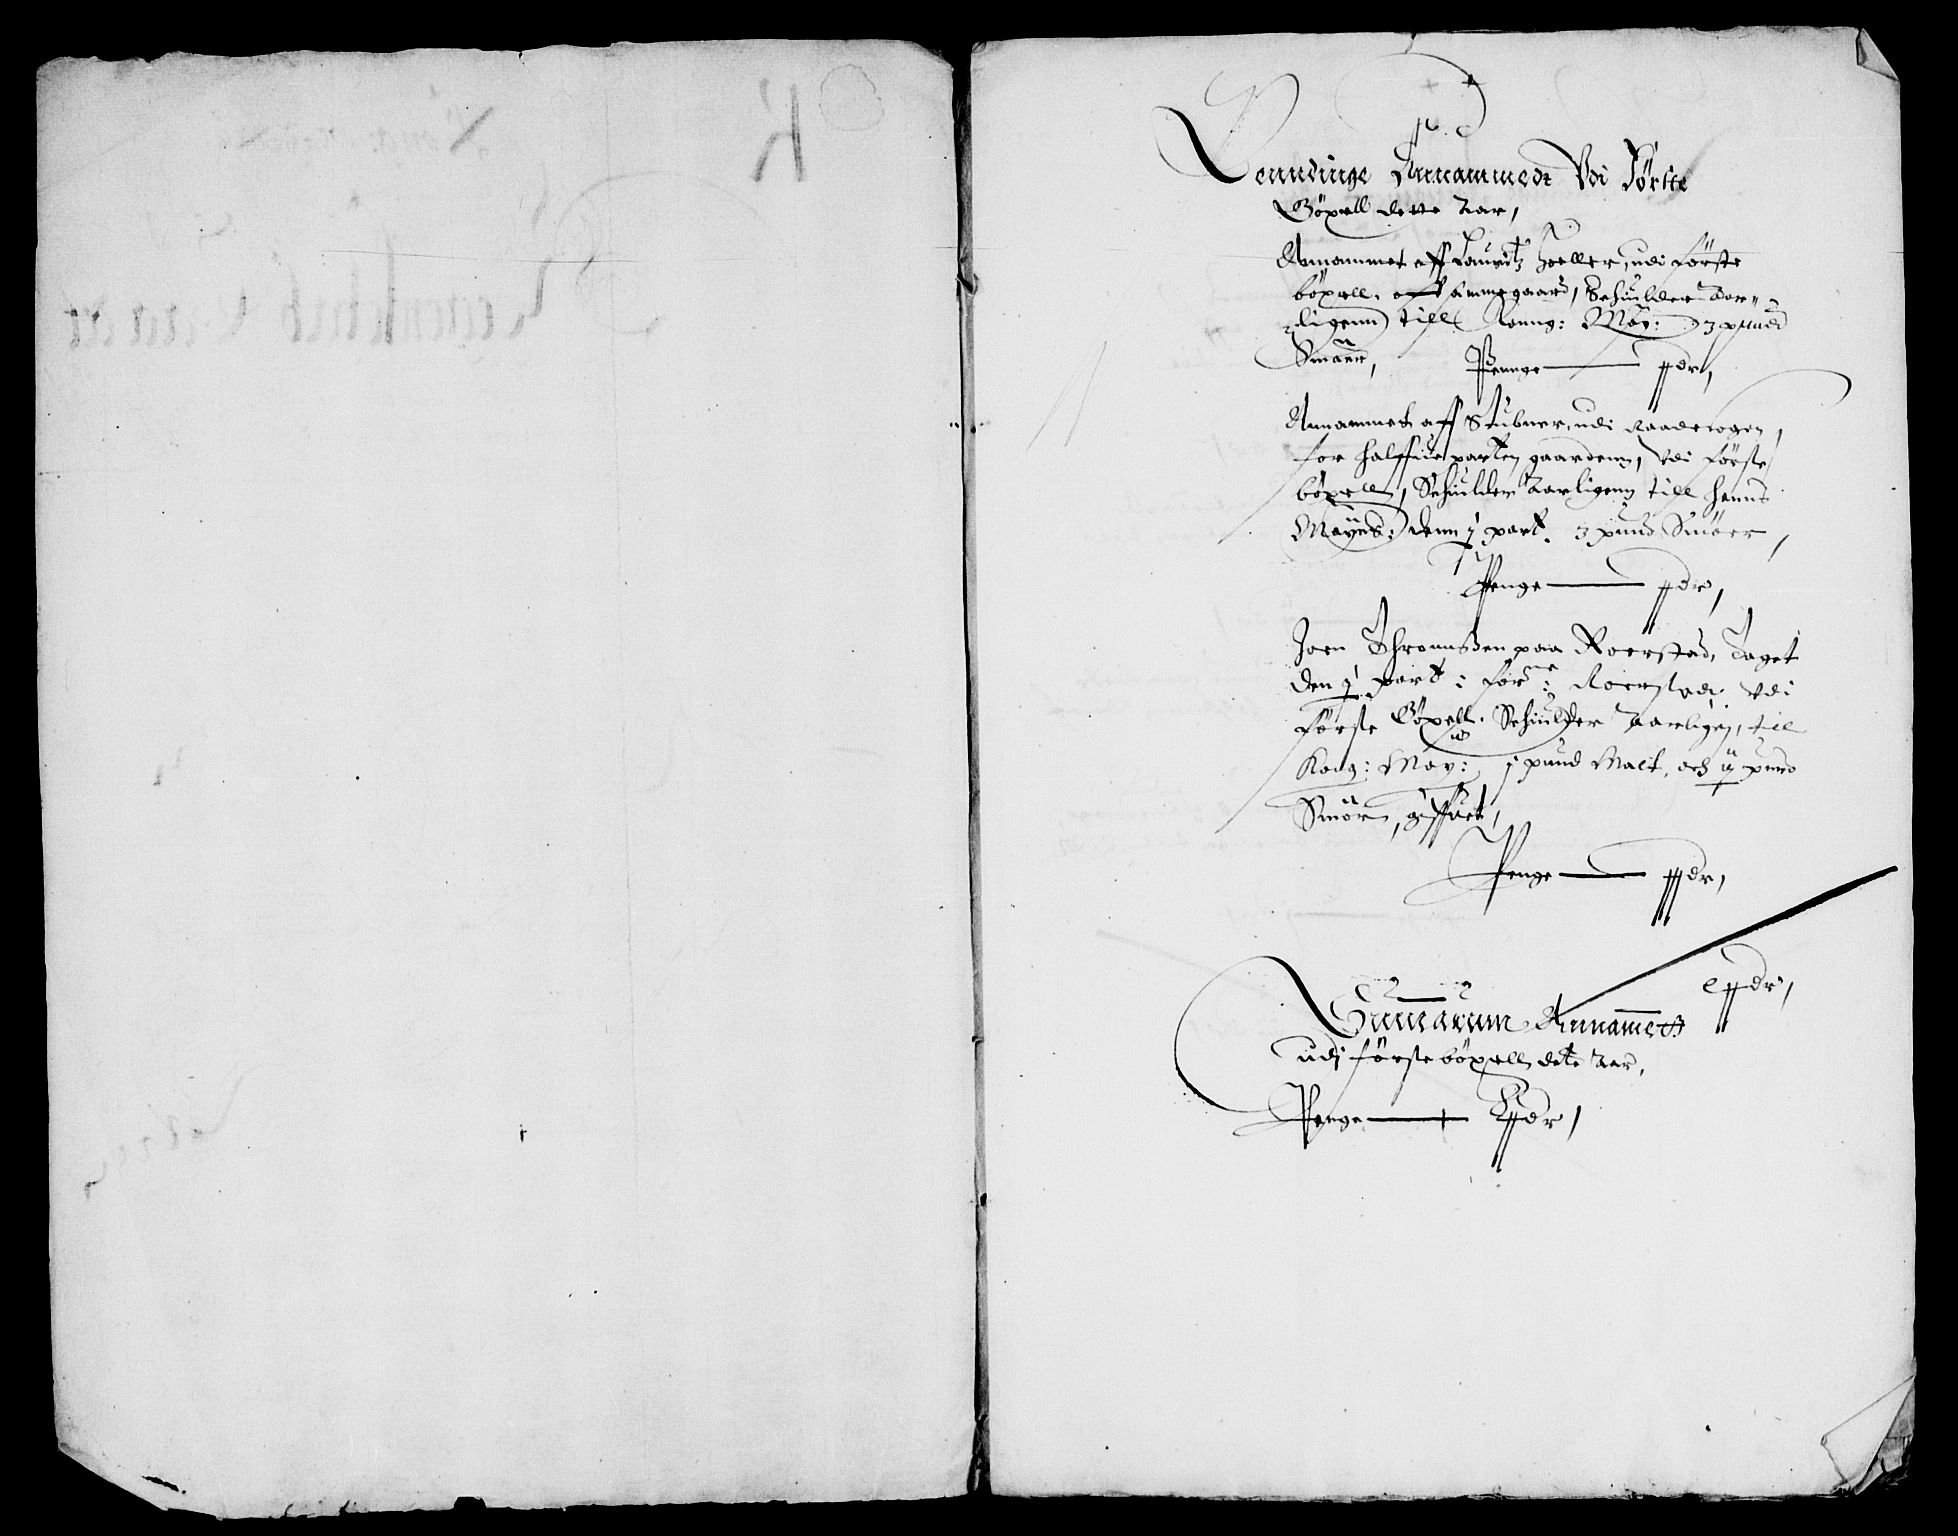 Penndinge Annammedt Vdi Første
Böxell dette Aar,
Annammet aff Lauridtz heller, udi förste
böxell, aff Ammegaard, Schulder Aar=
ligenn till Konng: May: 3 pund
Smöer,
Pennge — dr,
Annammet aff Stubner, udi Raadetogen,
for halffue parten gaardenn, vdi förste
böxell, Schulder Aarligenn till hanns
Mayts: denn part. 3 pund Smöer,
Penge — dr,
Joen Thronnssen paa Roerstad, Taget
den part i forne: Roerstad, vdi
förste Böxell. Schulder Aarligen, till
Kong: May: j pund Malt, och ij pund
Smör, giffuet,
Penge — dr,
dr,
Summarum Annammet
udj förste böxell dete Aar,
Penge — dr,